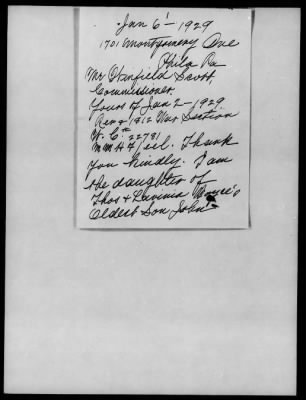 Jan 6' - 1929
1701 Montgomery Ave
Phila Pa
Mr Winfield Scott
Commissioner.
Yours of Jan 2 - 1929.
Rev & 1812 War Section
W. C. 22781
Thank
You kindly. I am
the daughter of
Thos & Lavinia Moore's
Oldest Son John